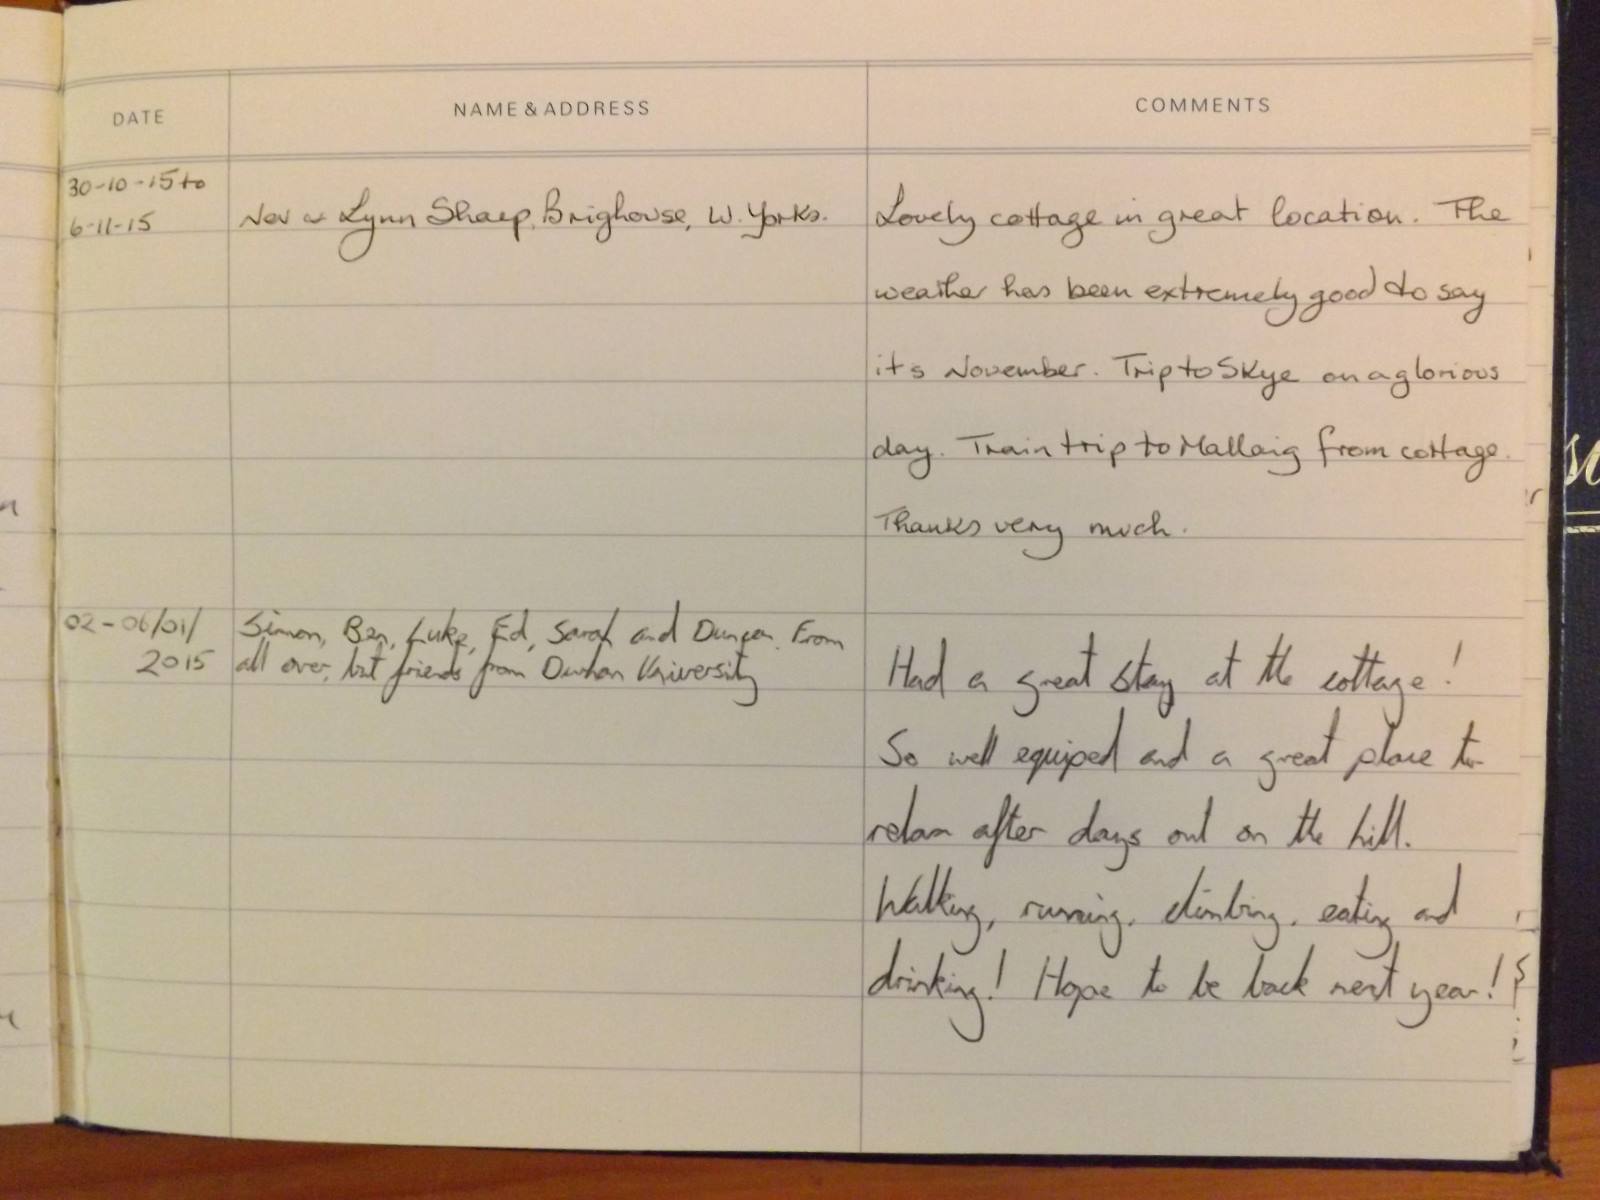 DATE NAME & ADDRESS COMMENTS
30-10-15 to
6-11-15
Nev & Lynn Sharp, Brighouse, W. Yorks.
Lovely cottage in great location. The
weather has been extremely good to say
it's November. Trip to Skye on a glorious
day. Train trip to Mallaig from cottage.
Thanks very much.
02-06/01/
2015
Simon, Ben, Luke, Ed, Sarah and Duncan. From
all over, but friends from Durham University
Had a great stay at the cottage!
So well equiped and a great place to
relax after days out on the hill.
Walking, running, climbing, eating and
drinking! Hope to be back next year!